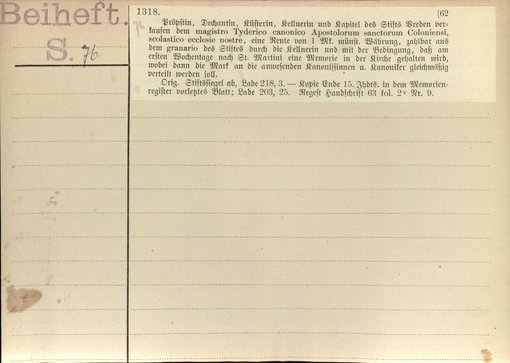 Beiheft.
S. 76
1318. [62
Pröpstin, Dechantin, Küsterin, Kellnerin und Kapitel des Stifts Vreden ver-
kaufen dem magistro Tyderico canonico Apostolorum sanctorum Coloniensi,
scolastico ecclesie nostre, eine Rente von 1 Mk. münst. Währung, zahlbar aus
dem granario des Stiftes durch die Kellnerin und mit der Bedingung, daß am
ersten Wochentage nach St. Martini eine Memorie in der Kirche gehalten wird,
wobei dann die Mark an die anwesenden Kanonissinnen u. Kanoniker gleichmäßig
verteilt werden soll.
Orig. Stiftssiegel ab, Lade 218, 3. — Kopie Ende 15. Jhdts. in dem Memorien-
register vorletztes Blatt; Lade 203, 25. Regest Handschrift 63 fol. 2v Nr. 9.